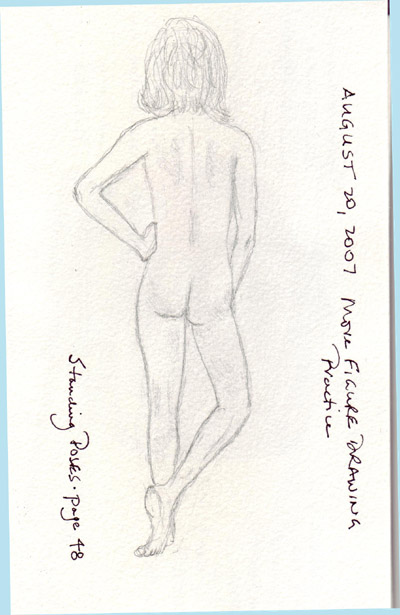 AUGUST 20, 2007 More FIGURE DRAWING
Practice
Standing Poses. page 48